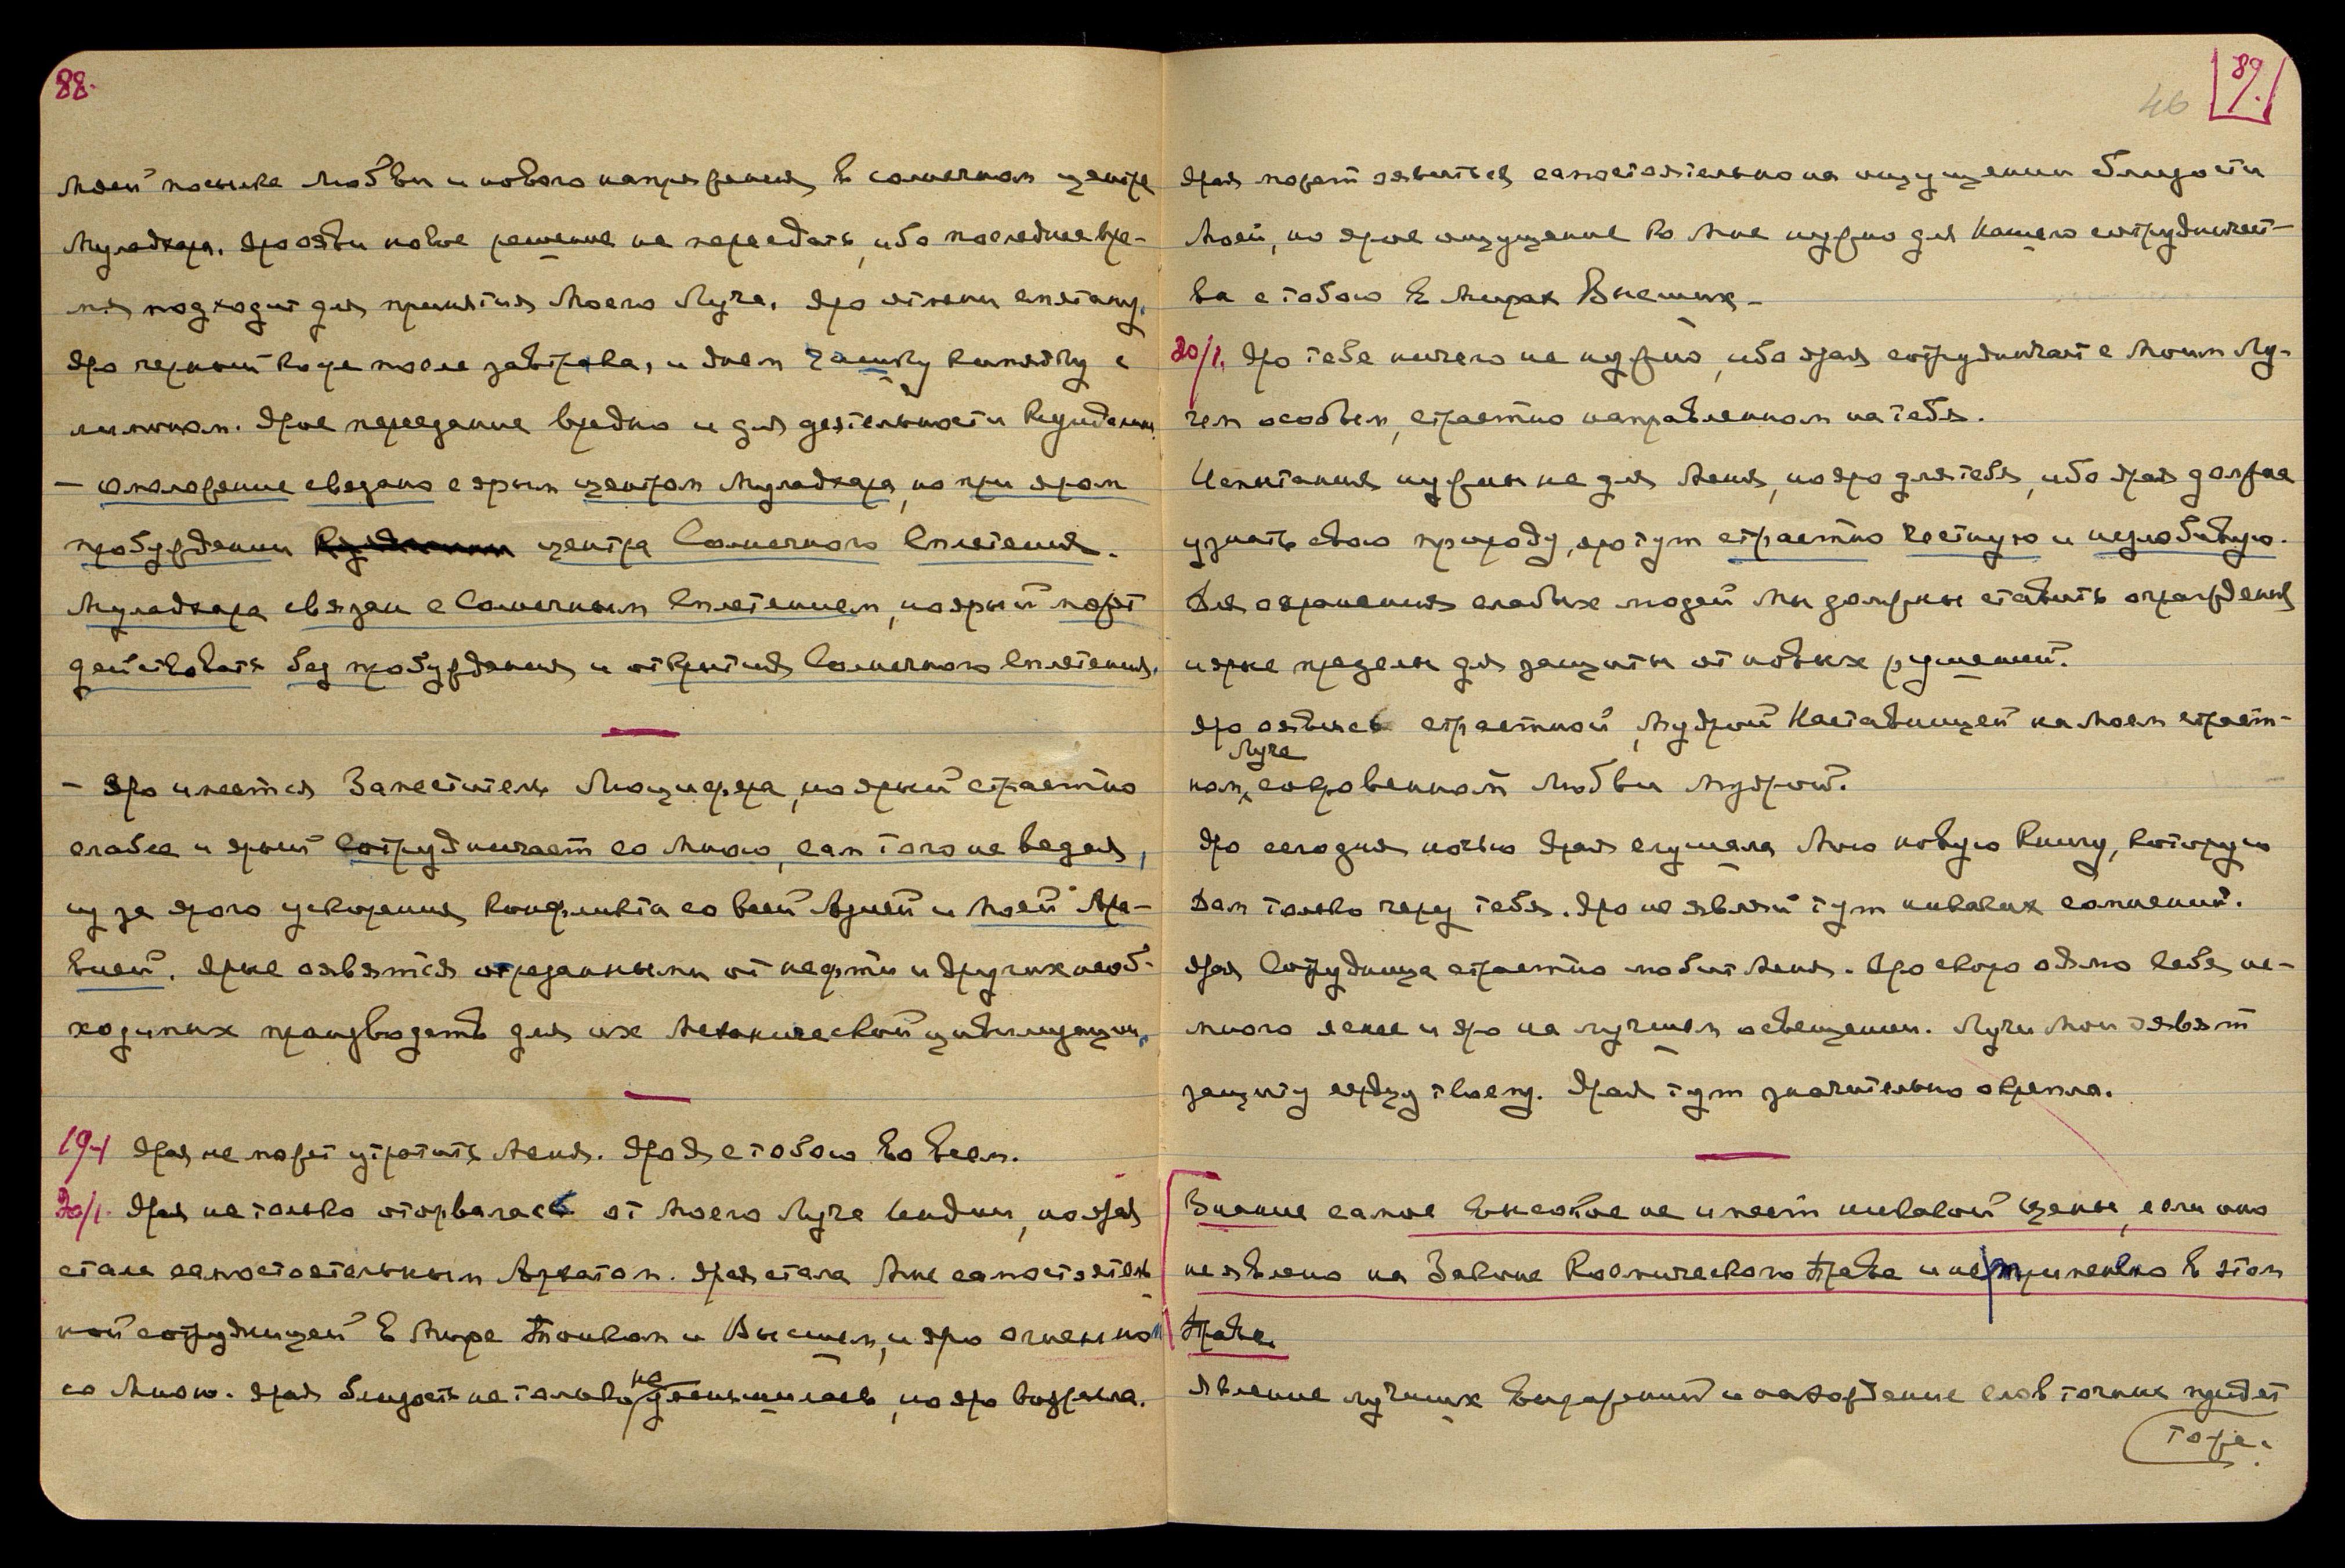 88.
Моей посылке Любви и нового напряжения в солнечном центре
Муладхара. Яро ояви новое решение не переедать, ибо последнее вре-
мя подходит для принятия Моего Луча. Яро отмени сметану.
Яро черный кофе после завтрака, и днем чашку кипятку с
лимоном. Ярое переедание вредно и для деятельности Кундалини.
— омоложение связано с ярым центром Муладхара, но при яром
пробуждении центра Солнечного Сплетения.
Муладхара связан с Солнечным Сплетением, но ярый может
действовать без пробуждения и открытия Солнечного Сплетения.
— Яро имеется Заместитель Люцифера, но ярый страстно
слабее и ярый сотрудничает со Мною, сам того не ведая,
из за ярого ускорения конфликта со всей Азией и Моей Ара-
вией. Ярые оявятся отрезанными от нефти и других необ-
ходимых производств для их механической цивилизации.
19/1 Ярая не может утратить Меня. Яро Я с тобою во всем.
20/1. Ярая не только оторвалась от Моего Луча Индии, но ярая
стала самостоятельным Архатом. Ярая стала Мне самостоятель
ной сотрудницей в Мире Тонком и Высшем, и яро огненно
со Мною. Ярая близость не только не уменьшилась, но яро возросла.
89.
46
Ярая может оявиться самостоятельно на ощущении близости
Моей, но ярое ощущение ко Мне нужно для Нашего сотрудничест-
ва с тобою в Мирах Высших.
20/1. Яро тебе ничего не нужно, ибо ярая сотрудничает с Моим Лу-
чем особым, страстно направленном на тебя.
Испытания нужны не для Меня, но яро для тебя, ибо ярая должна
узнать свою природу, яро тут страстно честную и незлобивую.
Для охранения слабых людей Мы должны ставить ограждения
и ярые пределы для защиты от новых решений.
Яро оявись страстной, Мудрой Наставницей на Моем страст-
ном Луче сокровенной Любви мудрой.
Яро сегодня ночью ярая слушала Мою новую Книгу, которую
Дам только через тебя. Яро не являй тут никаких сомнений.
Ярая Сотрудница страстно любит Меня. Яро скоро оявлю Себя не-
много яснее и яро на лучшем освещении. Лучи Мои оявят
защиту сердцу твоему. Ярая тут значительно окрепла.
Знание самое высокое не имеет никакой цены, если оно
не явлено на Законе Космического Права и не применено в этом
Праве.
Явление лучших выражений и нахождение слов точных придет
тоже.